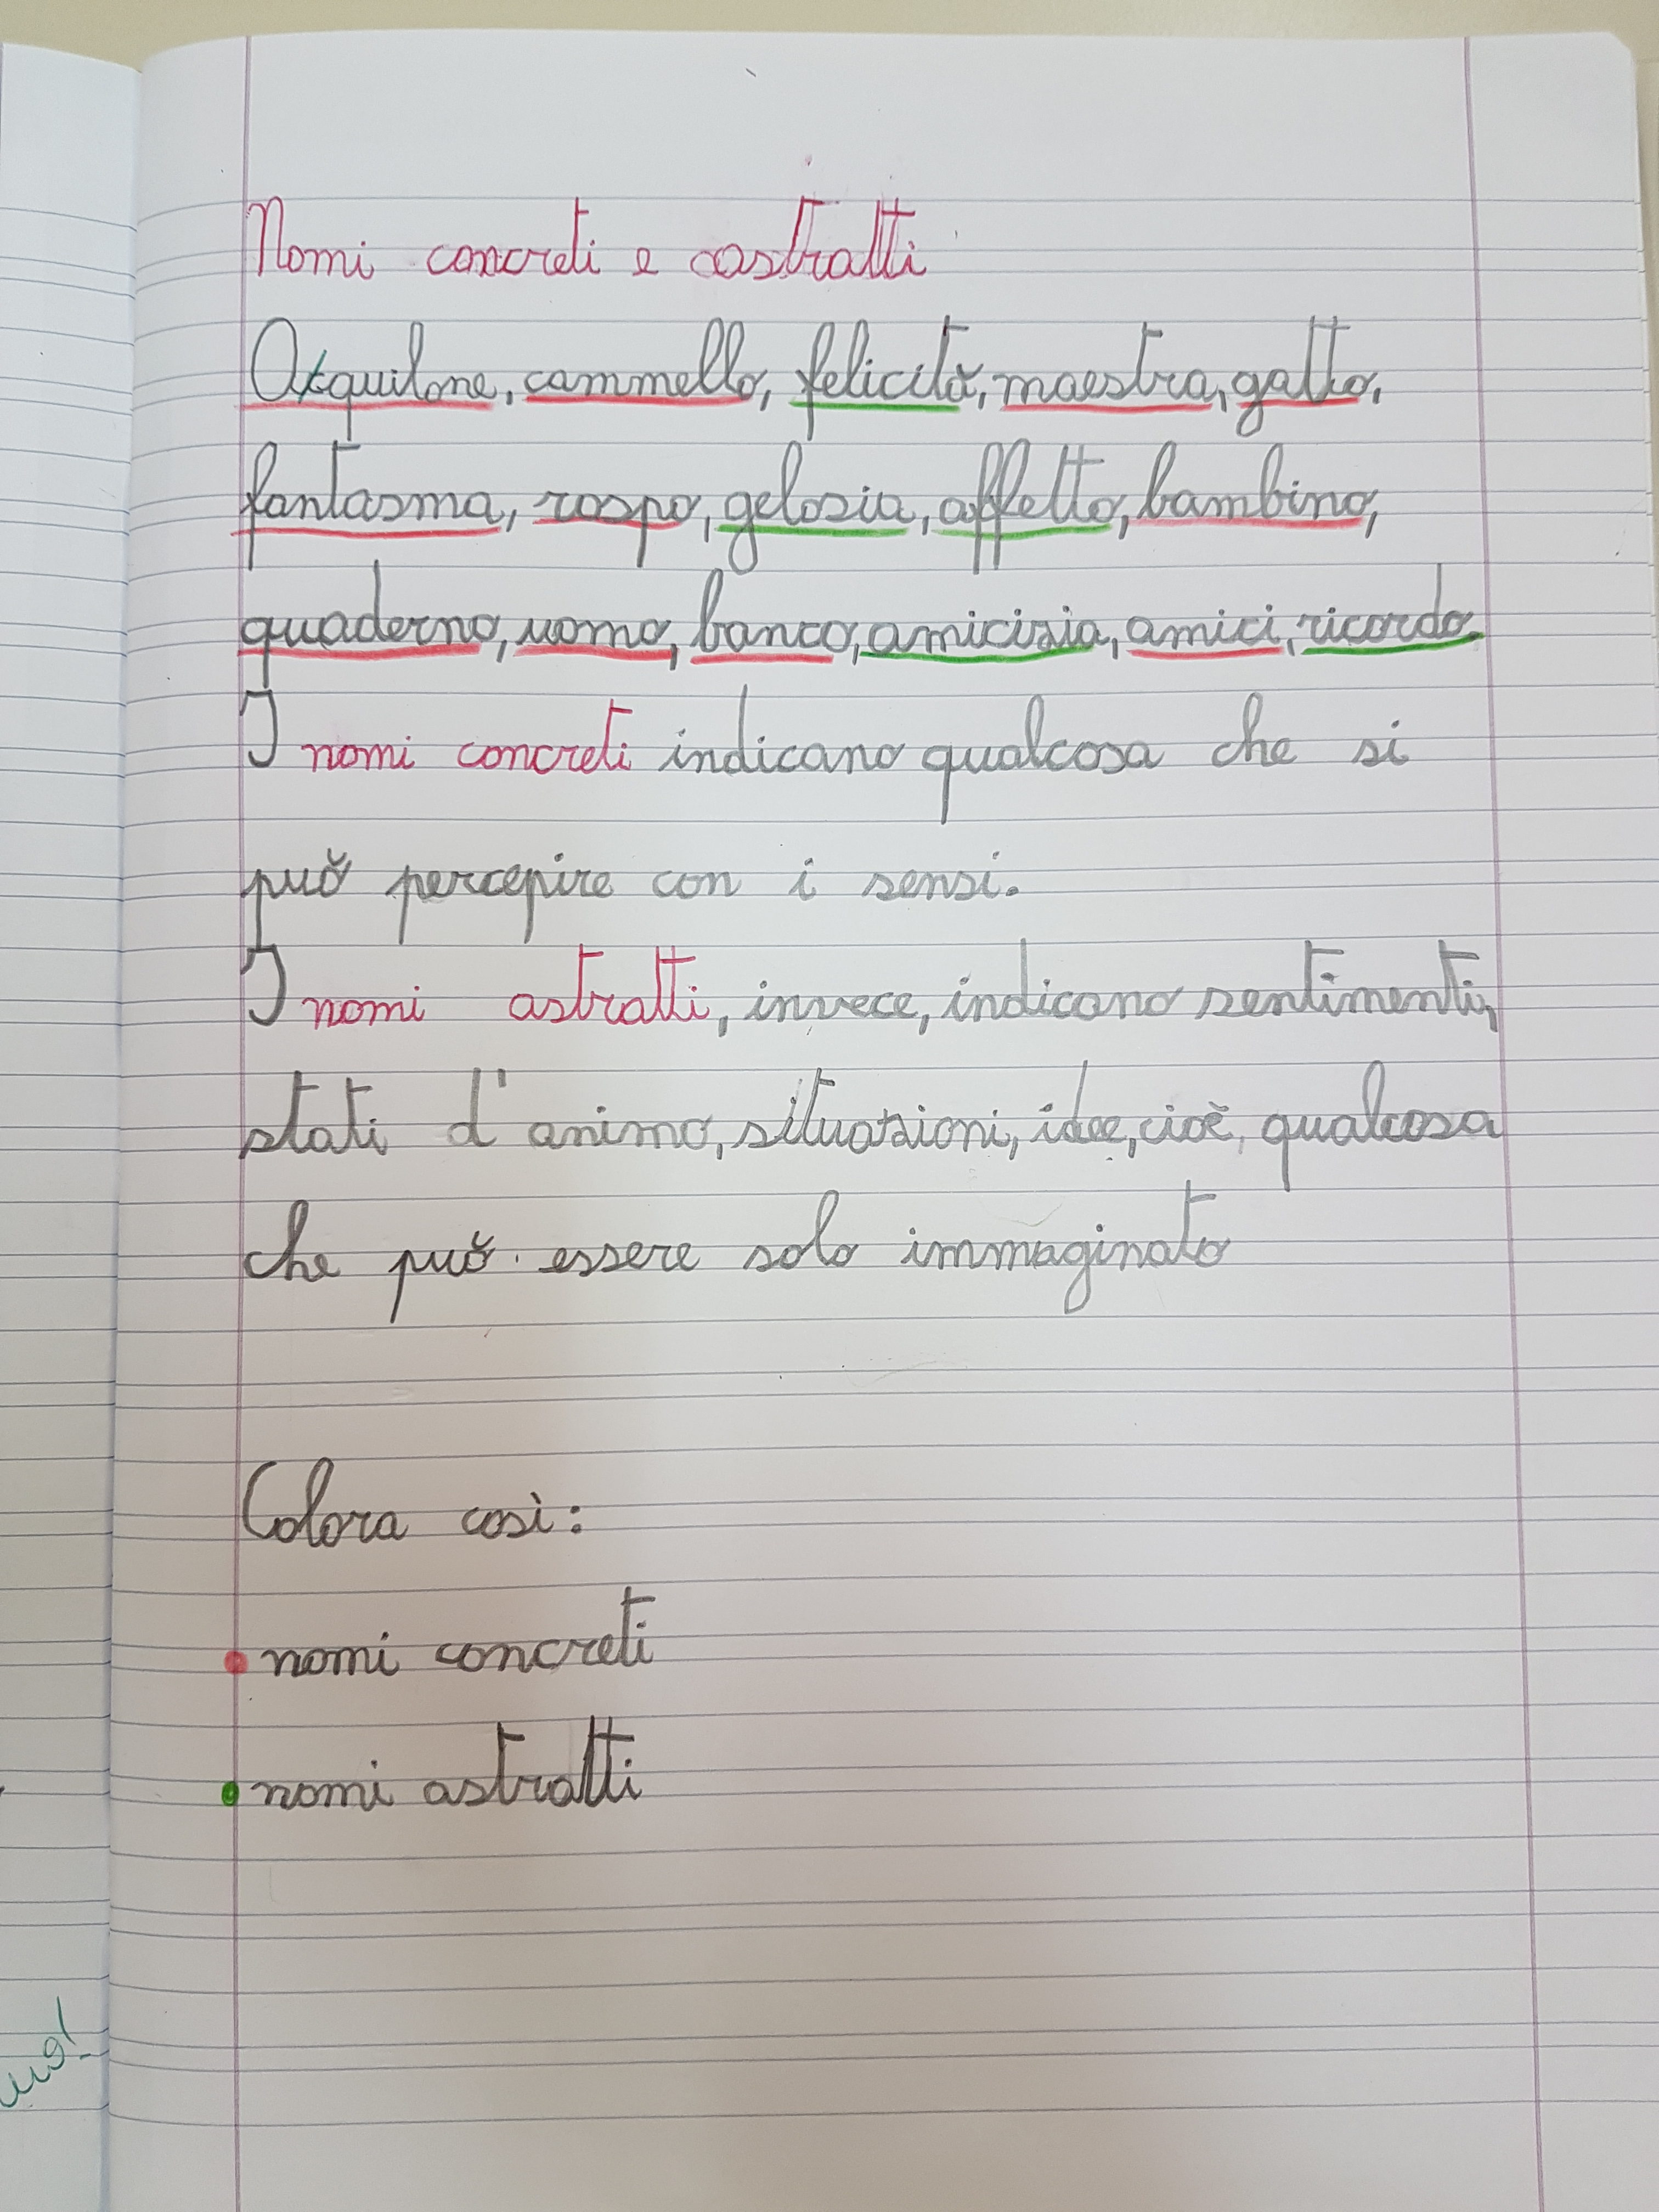 Nomi concreti e astratti
Aquilone, cammello, felicità, maestra, gatto,
fantasma, rospo, gelosia, affetto, bambino,
quaderno, uomo, banco, amicizia, amici, ricordo.
I nomi concreti indicano qualcosa che si
può percepire con i sensi.
I nomi astratti, invece, indicano sentimenti,
stati d'animo, situazioni, idee, cioè, qualcosa
che può essere solo immaginato
Colora così:
nomi concreti
nomi astratti